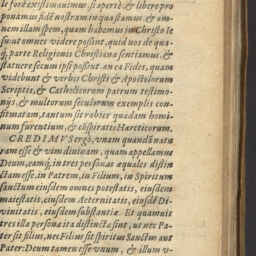 le fore existimauimus, si apertè, & libere pro
ponamus fidē nostram in qua stamus, & om-
nem illam spem, quam habemus in Christo Ie
su: ut omnes videre possint, quid nos de qua-
q; parte Religionis Christianæ sentiamus, &
statuere secum ipsi possint, an ea Fides, quam
videbunt & verbis Christi & Apostolorum
Scriptis, & Catholicorum patrum testimo-
nijs, & multorum seculorum exemplis con-
firmatam, tantum sit rabies quædam homi-
num furentium, & cōspiratio Hæreticorum.
CREDIMVS ergo, vnam quandā natu
ram esse & vim diuinam, quam appellamus
Deum, eamq́; in tres personas æquales distin
ctam esse, in Patrem, in Filium, in Spiritum
sanctum eiusdem omnes potestatis, eiusdem
maiestatis, eiusdem Aeternitatis, eiusdē Di-
uinitatis, eiusdem substantiæ. Et quamuis
tres illa personæ ita distinctæ sint, ut nec Pa-
ter sit filius, nec Filius sit spiritus Sanctus aut
Pater: Deum tamen esse vnum, & illum v-